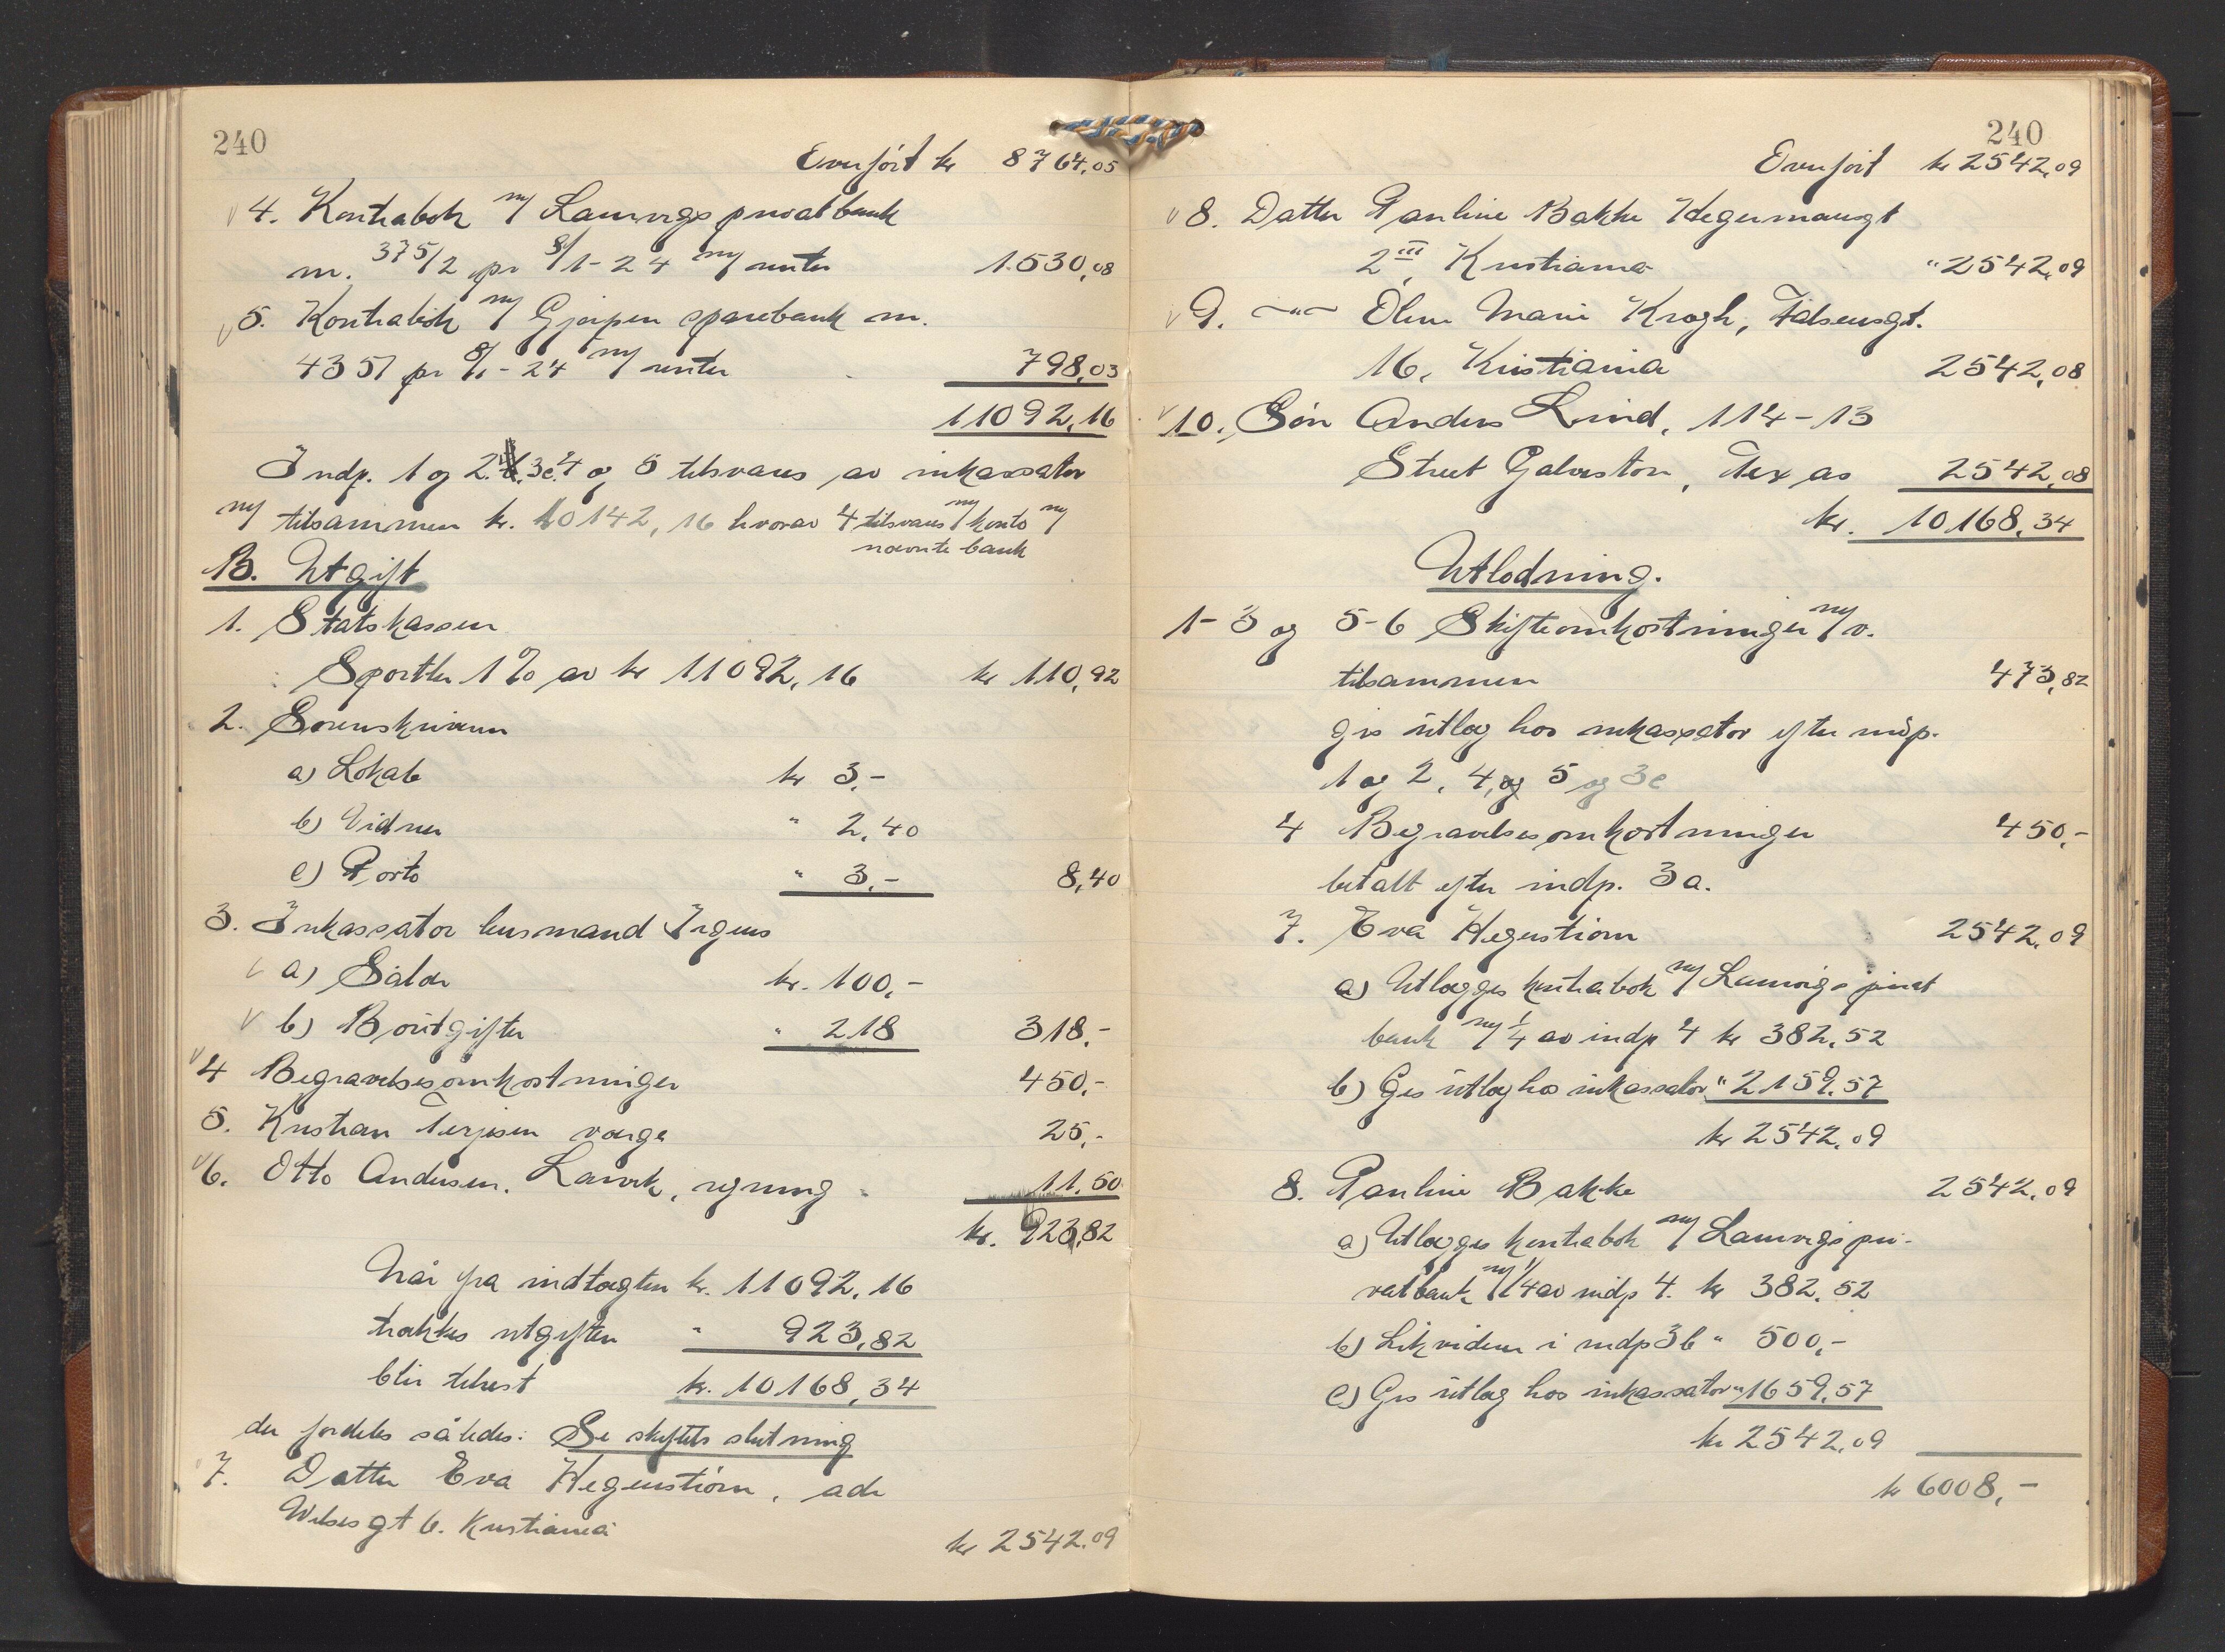 240
Overført kr 8764,05
4. Kontrabok m/ Laurvigs privatbank
nr. 375/2 pr 8/1-24 m/ renter 1.530,08
5. Kontrabok m/ Gjerpen sparebank nr.
4351 pr 8/1-24 m/ renter 798,03
11092,16
Indp. 1 og 2. 3c. 4 og 5 tilsvares av inkassator
m/ tilsammen kr. 10142,16 hvorav 4 tilsvares m/ konto m/
nævnte bank
B. Utgift
1. Statskassen
Sportler 1% av kr 11092,16 kr 110,92
2. Sorenskriveren
a) Lokale kr 3,-
b) Vidner " 2,40
c) Porto " 3,- 8,40
3. Inkassator lensmand Irgens
a) Salær kr. 100,-
b) Boutgifter " 218 318,-
4 Begravelsesomkostninger 450,-
5. Kristian Terjesen værge 25,-
6. Otto Andersen. Larvik, regning 11.50
kr. 923,82
Når fra indtægten kr. 11092,16
trækkes utgiften " 923,82
blir tilrest kr. 10168,34
der fordeles således: Se skiftets slutning
7. Datter Eva Hegerstrøm, adr
gt 6. Kristiania
kr 2542.09
240
Overført kr 2542,09
8. Datter Pauline Bakke Hegermansgt
2 III, Kristiania " 2542,09
9. —"— Oline Marie Krogh, Falsensgt.
16, Kristiania 2542,08
10. Søn Anders Lund, 114-13
Street Galveston, Texas 2542,08
kr. 10168,34
Utlodning.
1-3 og 5-6 Skifteomkostninger m/v.
tilsammen 473,82
gis utlæg hos inkassator efter indp.
1 og 2, 4, og 5 og 3c
4 Begravelsesomkostninger 450,-
betalt efter indp. 3a.
7. Eva Hegerstrøm 2542,09
a) Utlægges kontrabok m/ Laurvigs privat
bank m/ 1/4 av indp 4 kr 382,52
b) Gis utlæg hos inkassator " 2159,57
kr 2542,09
8. Pauline Bakke 2542,09
a) Utlægges kontrabok m/ Laurvigs pri-
vatbank m/ 1/4 av indp 4. kr 382,52
b) Likvideres i indp 3b " 500,-
c) Gis utlæg hos inkassator " 1659,57
kr 2542,09
kr 6008,-